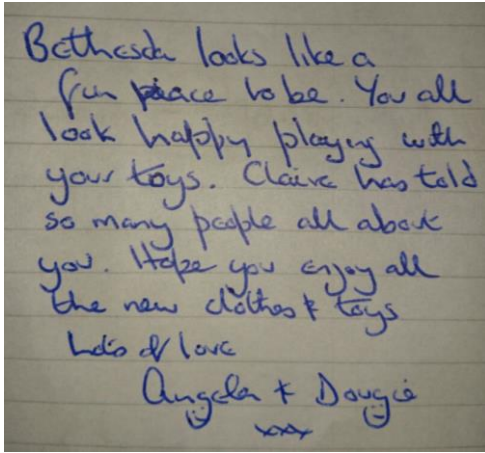 Bethesda looks like a
fun place to be. You all
look happy playing with
your toys. Claire has told
so many people all about
you. Hope you enjoy all
the new clothes & toys
Lots of love
Angela & Dougie
xxx